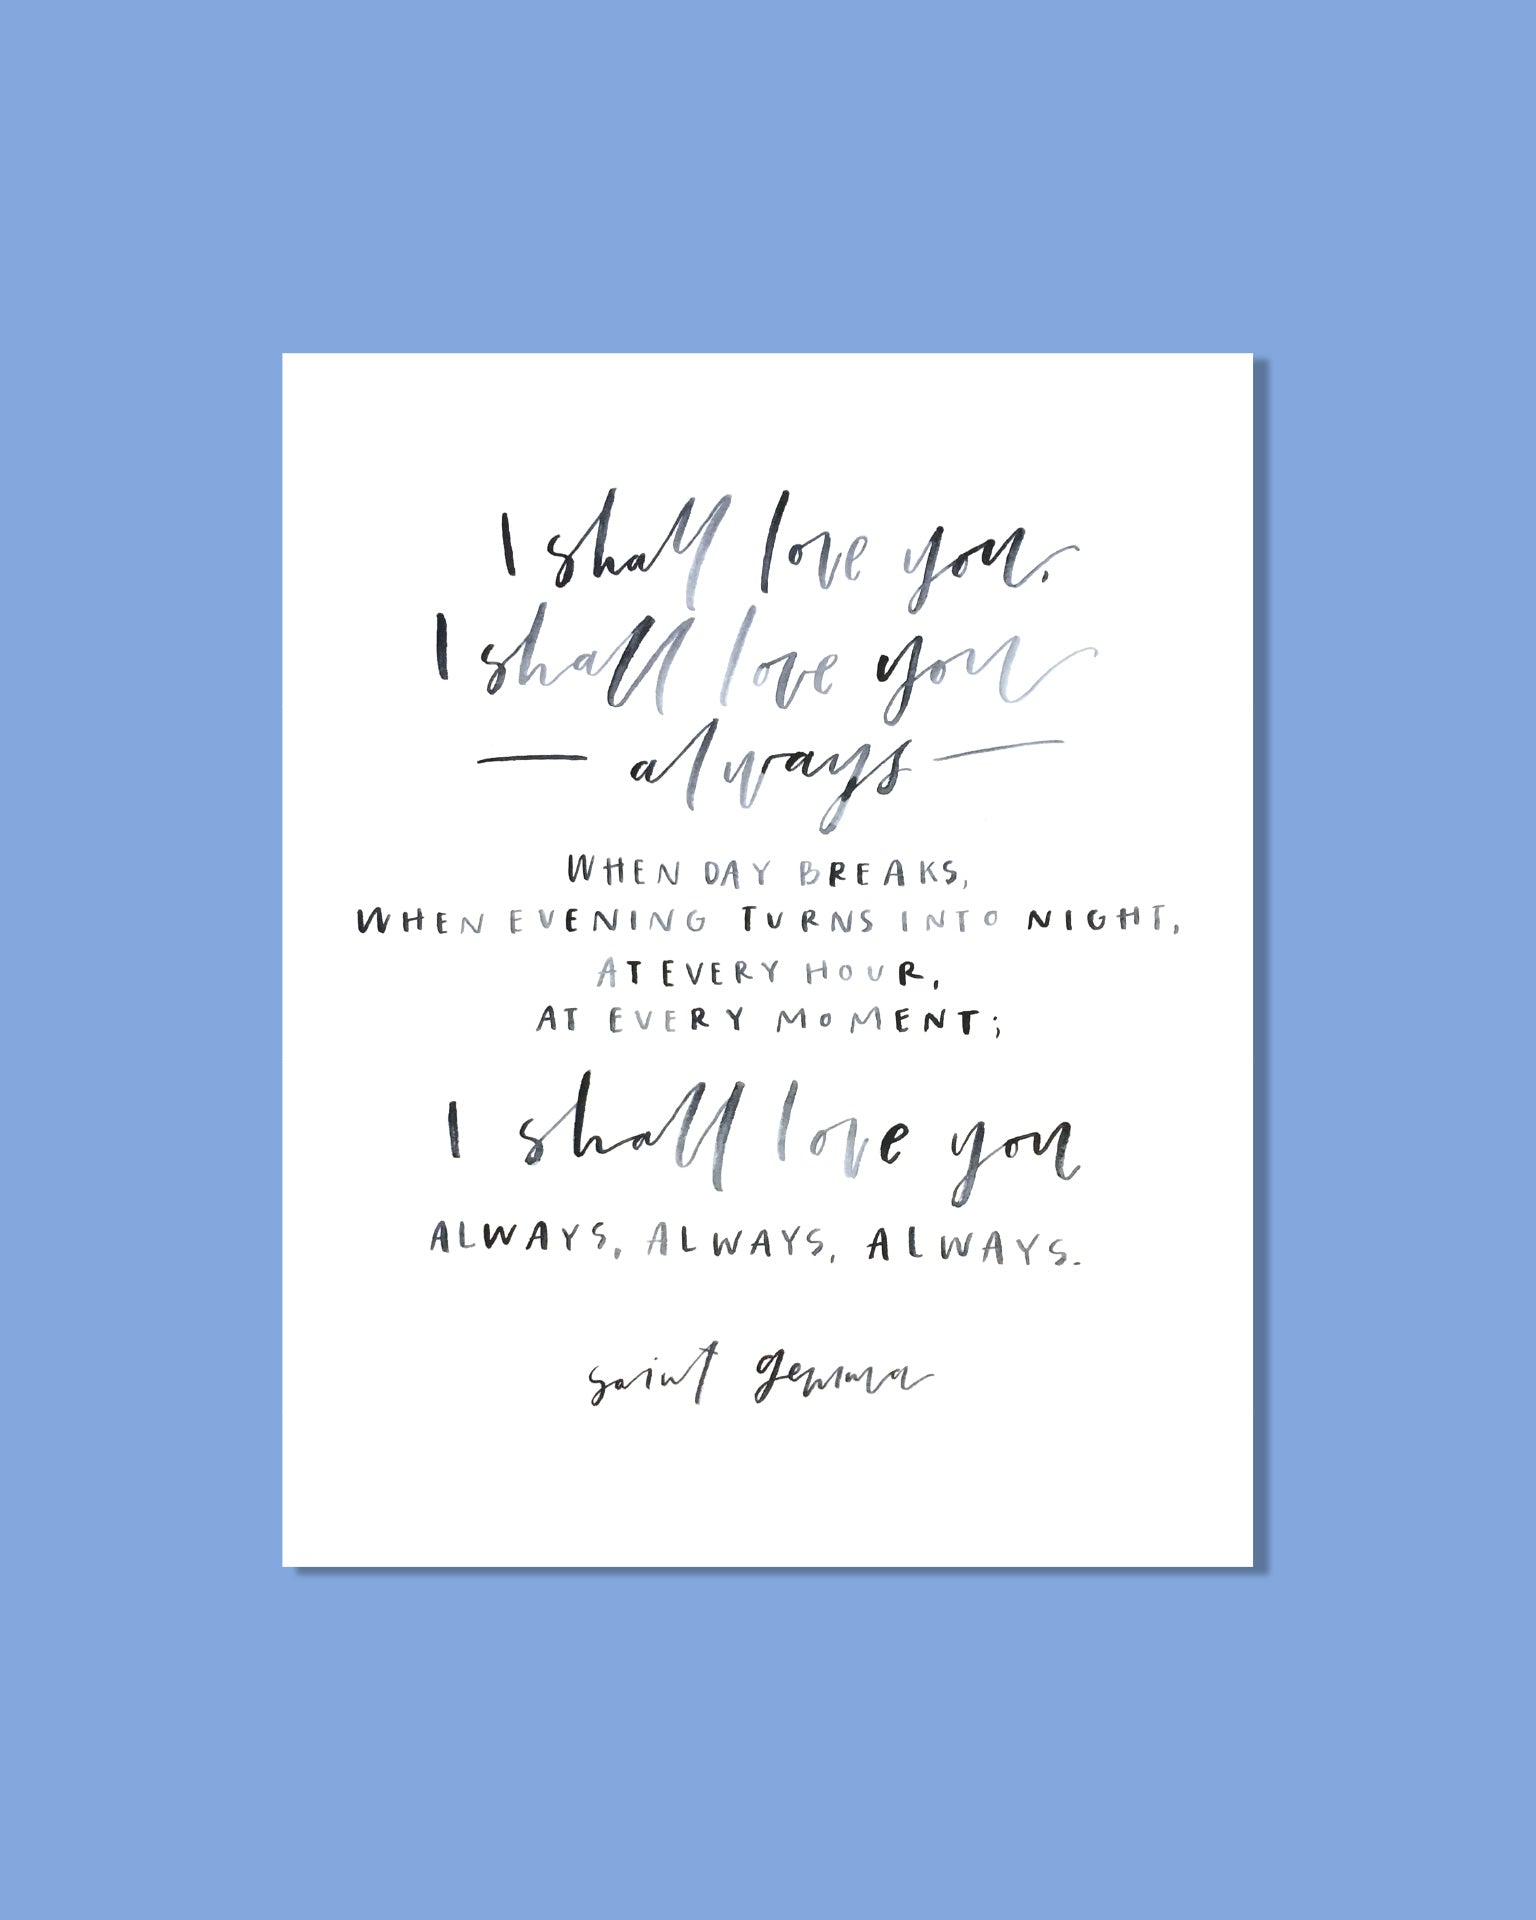 I shall love you,
I shall love you
— always —
WHEN DAY BREAKS,
WHEN EVENING TURNS INTO NIGHT,
AT EVERY HOUR,
AT EVERY MOMENT;
I shall love you
ALWAYS, ALWAYS, ALWAYS.
saint gemma